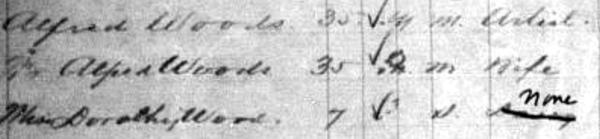 Alfred Woods. 35 ✓ M m. Artist.
Mrs Alfred Woods 35 ✓ m Wife
Miss Dorothy Wood. 7 ✓ S. None